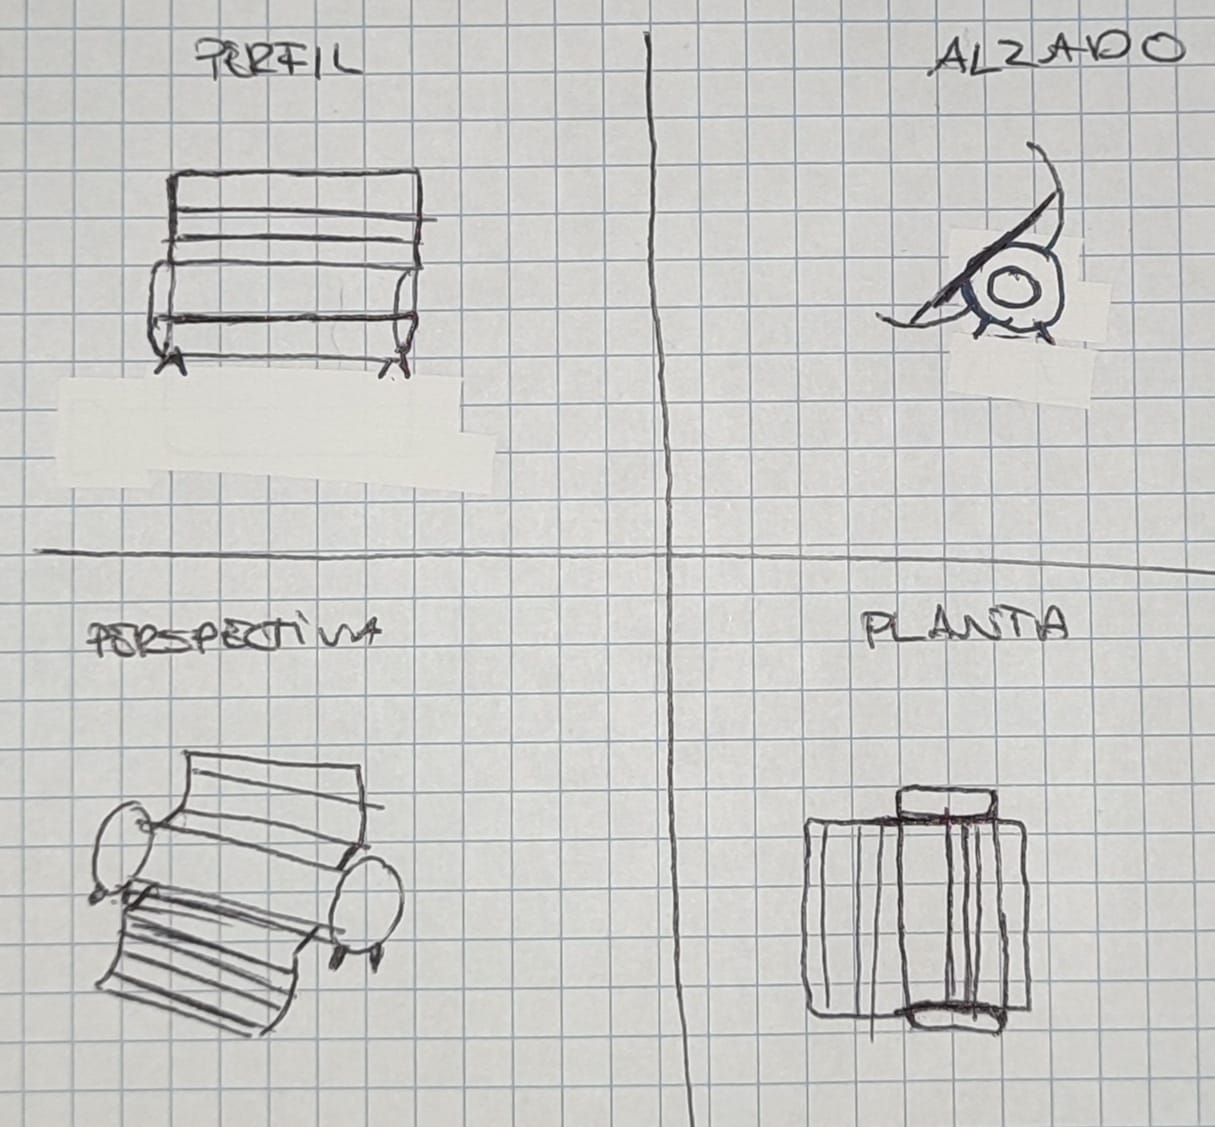 PERFIL
ALZADO
PERSPECTiVA
PLANTA